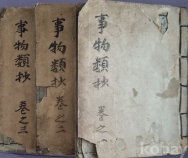 事物類抄 卷之三
事物類抄 卷之二
事物類抄 卷之一
kobay